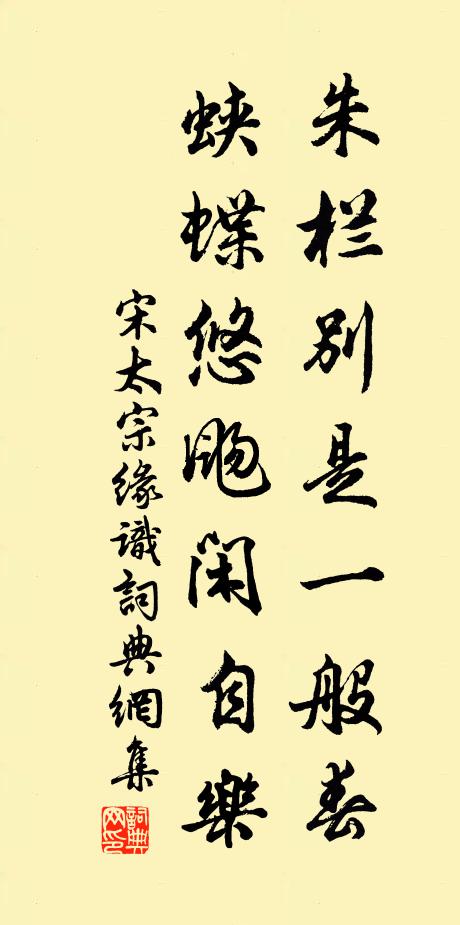 朱栏别是一般春
蛱蝶悠飏闲自樂
宋太宗缘識詞典網集
詞典网印